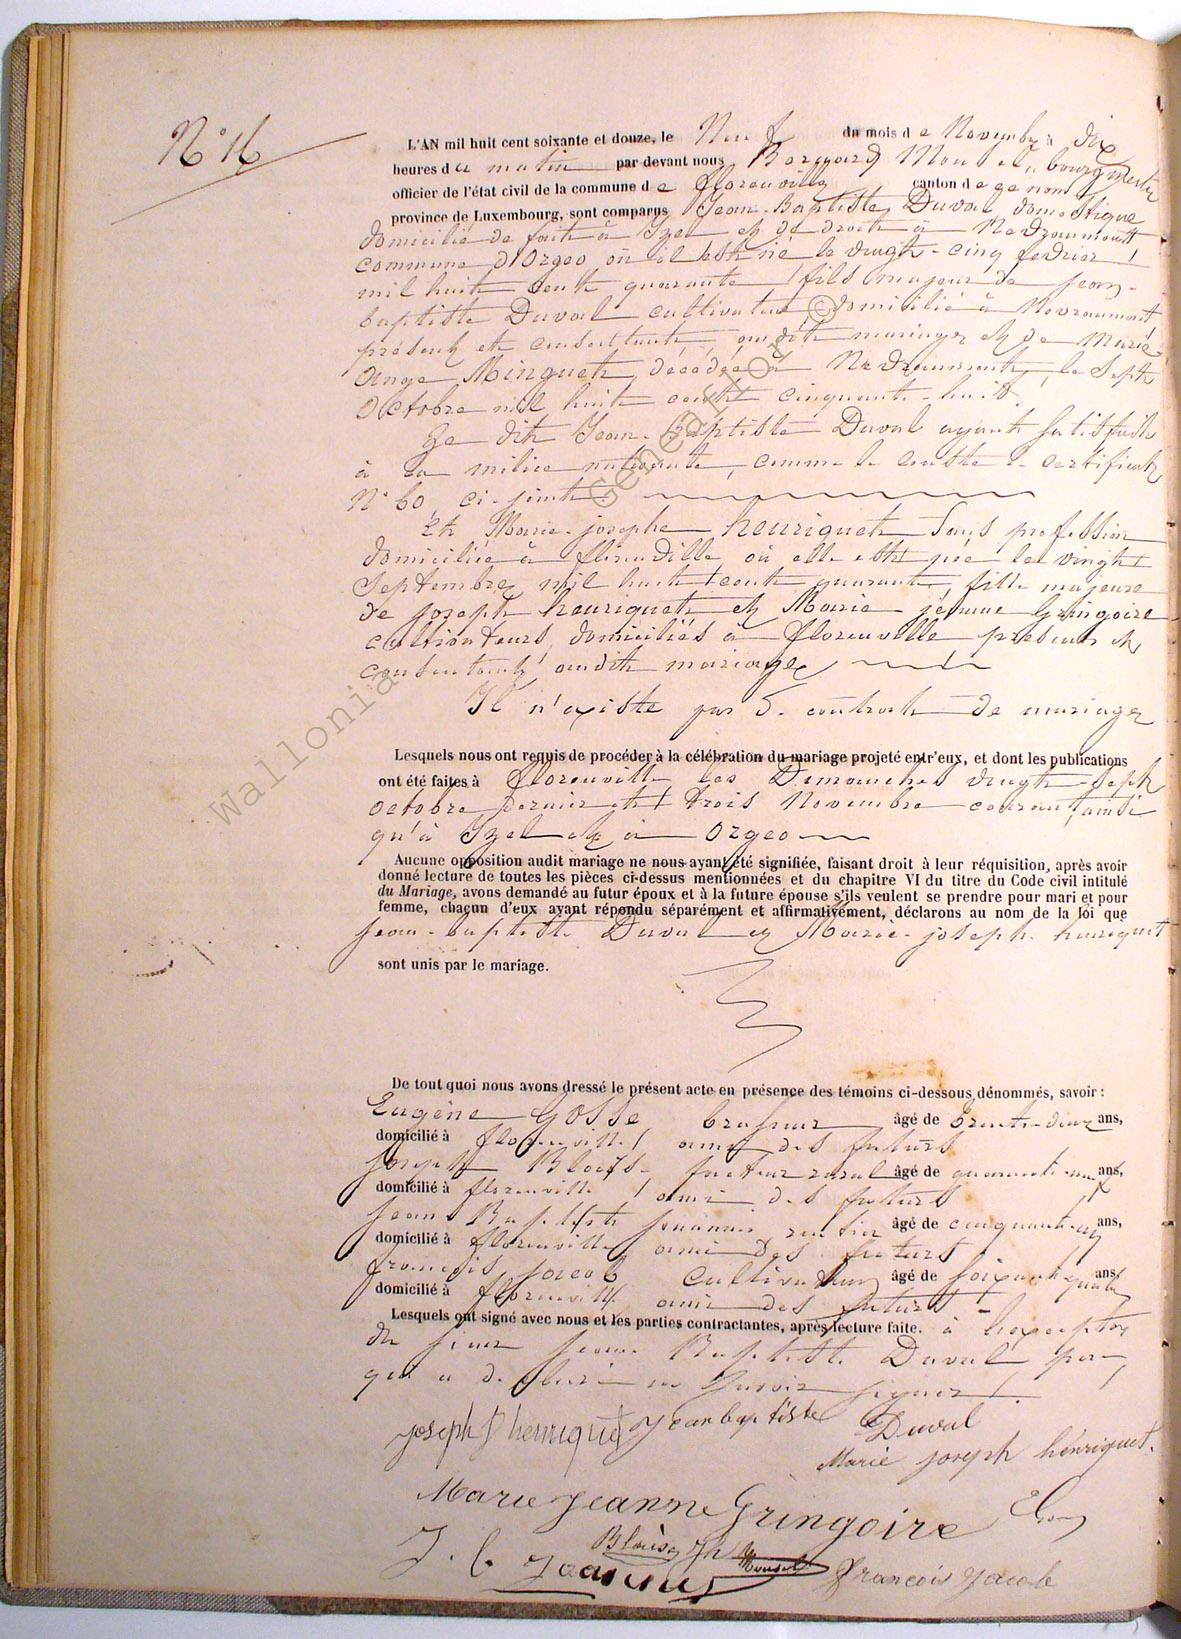 N° 16
L'AN mil huit cent soixante et douze, le Neuf du mois de Novembre à dix
heures du matin par devant nous Bernard Mouzel bourgmestre
officier de l'état civil de la commune de florenville canton de ce nom
province de Luxembourg, sont comparus Jean-Baptiste Duval domestique
domicilié de fait à Izel et de droit à Nevraumont
commune d'Orgeo où il est né le vingt-cinq fevrier
mil huit cent quarante fils majeur de jean-
baptiste Duval cultivateur domicilié à Nevraumont
présent et consentant audit mariage et de Marie
Ange Minguet décédée à Nevraumont le sept
Octobre mil huit cent cinquante-huit.
Le dit Jean-Baptiste Duval ayant satisfait
à la milice nationale, comme le conste le certificat
N° 60 ci-joint.
Et Marie-josephe henriquet sans profession
domiciliée à florenville où elle est née le vingt
Septembre mil huit cent quarante, fille majeure
de joseph henriquet et Marie-jeanne Gringoire
cultivateurs, domiciliés à florenville présents et
consentants audit mariage
Il n'existe pas de contrat de mariage
Lesquels nous ont requis de procéder à la célébration du mariage projeté entr'eux, et dont les publications
ont été faites à florenville les Dimanches vingt-sept
octobre dernier et trois Novembre courant, ainsi
qu'à Izel et à Orgeo
Aucune opposition audit mariage ne nous ayant été signifiée, faisant droit à leur réquisition, après avoir
donné lecture de toutes les pièces ci-dessus mentionnées et du chapitre VI du titre du Code civil intitulé
du Mariage, avons demandé au futur époux et à la future épouse s'ils veulent se prendre pour mari et pour
femme, chacun d'eux ayant répondu séparément et affirmativement, déclarons au nom de la loi que
jean-baptiste Duval et Marie-joseph henriquet
sont unis par le mariage.
De tout quoi nous avons dressé le présent acte en présence des témoins ci-dessous dénommés, savoir :
Eugène Gosse brasseur âgé de trente-deux ans,
domicilié à florenville ami des futurs
joseph Blaise facteur rural âgé de quarante-neuf ans,
domicilié à florenville ami des futurs
jean Baptiste rentier âgé de cinquante ans,
domicilié à florenville ami des futurs
françois jacob cultivateur âgé de soixante quatre ans
domicilié à florenville ami des futurs
Lesquels ont signé avec nous et les parties contractantes, après lecture faite. à l'exception
du sieur jean Baptiste Duval père
qui a déclaré ne savoir signer
joseph henriquet jean baptiste Duval
Marie joseph henriquet.
Marie jeanne Gringoire
Blaise
J. b
françois jacob
Wallonia Geneafror ©